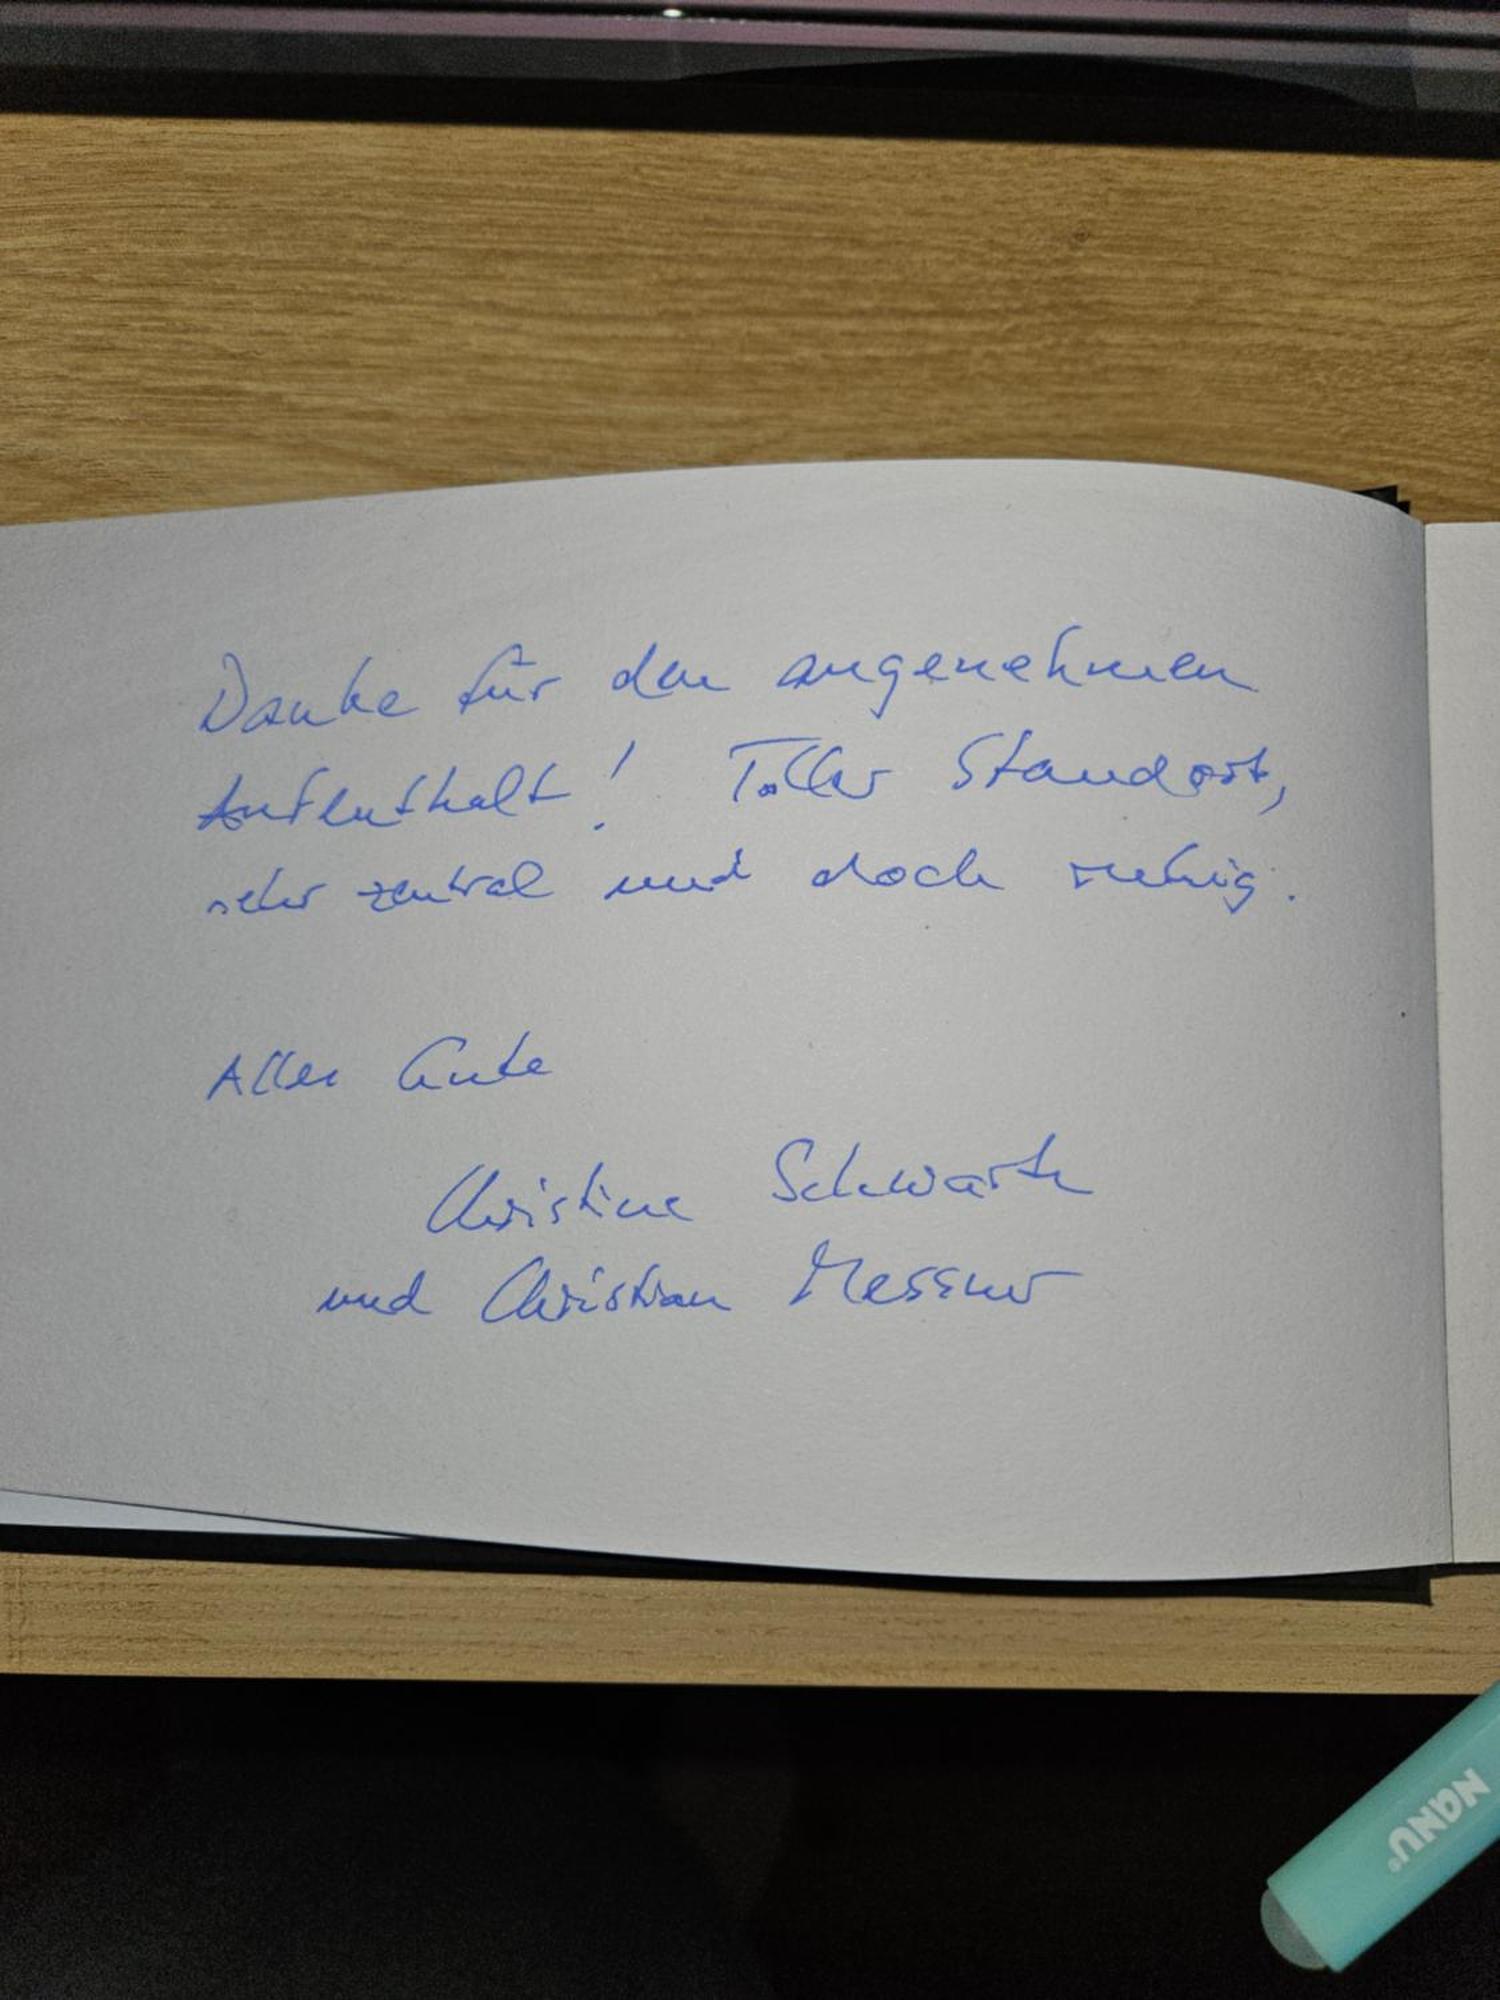 Danke für den angenehmen
Aufenthalt! Toller Standort,
sehr zentral und doch ruhig.
Alles Gute
Christine Schwartz
und Christian Messner
NANU